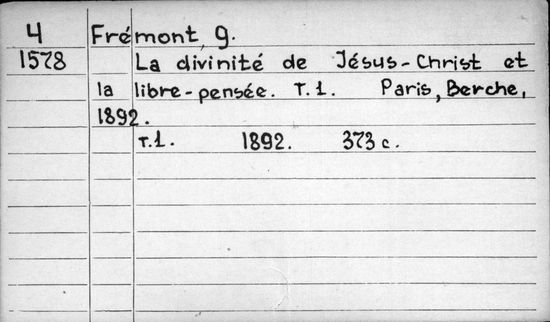 4 Frémont, g.
1578 La divinité de Jésus-Christ et
la libre-pensée. T.1. Paris, Berche,
1892.
T.1. 1892. 373 c.